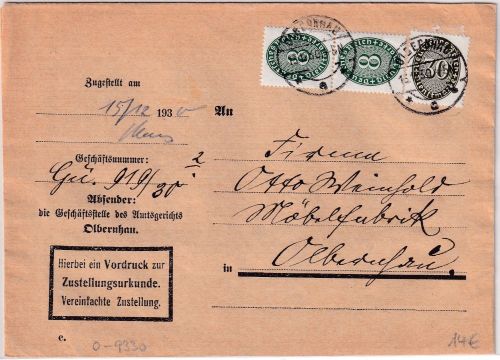 8
8
Zugestellt am
15/12 1930
An
Geschäftsnummer:
2
Gü. 919/30
Absender:
die Geschäftsstelle des Amtsgerichts
Olbernhau.
Hierbei ein Vordruck zur
Zustellungsurkunde.
Vereinfachte Zustellung.
Firma
Otto Weinhold
Möbelfabrik
in Olbernhau.
c.
0-9330
14€